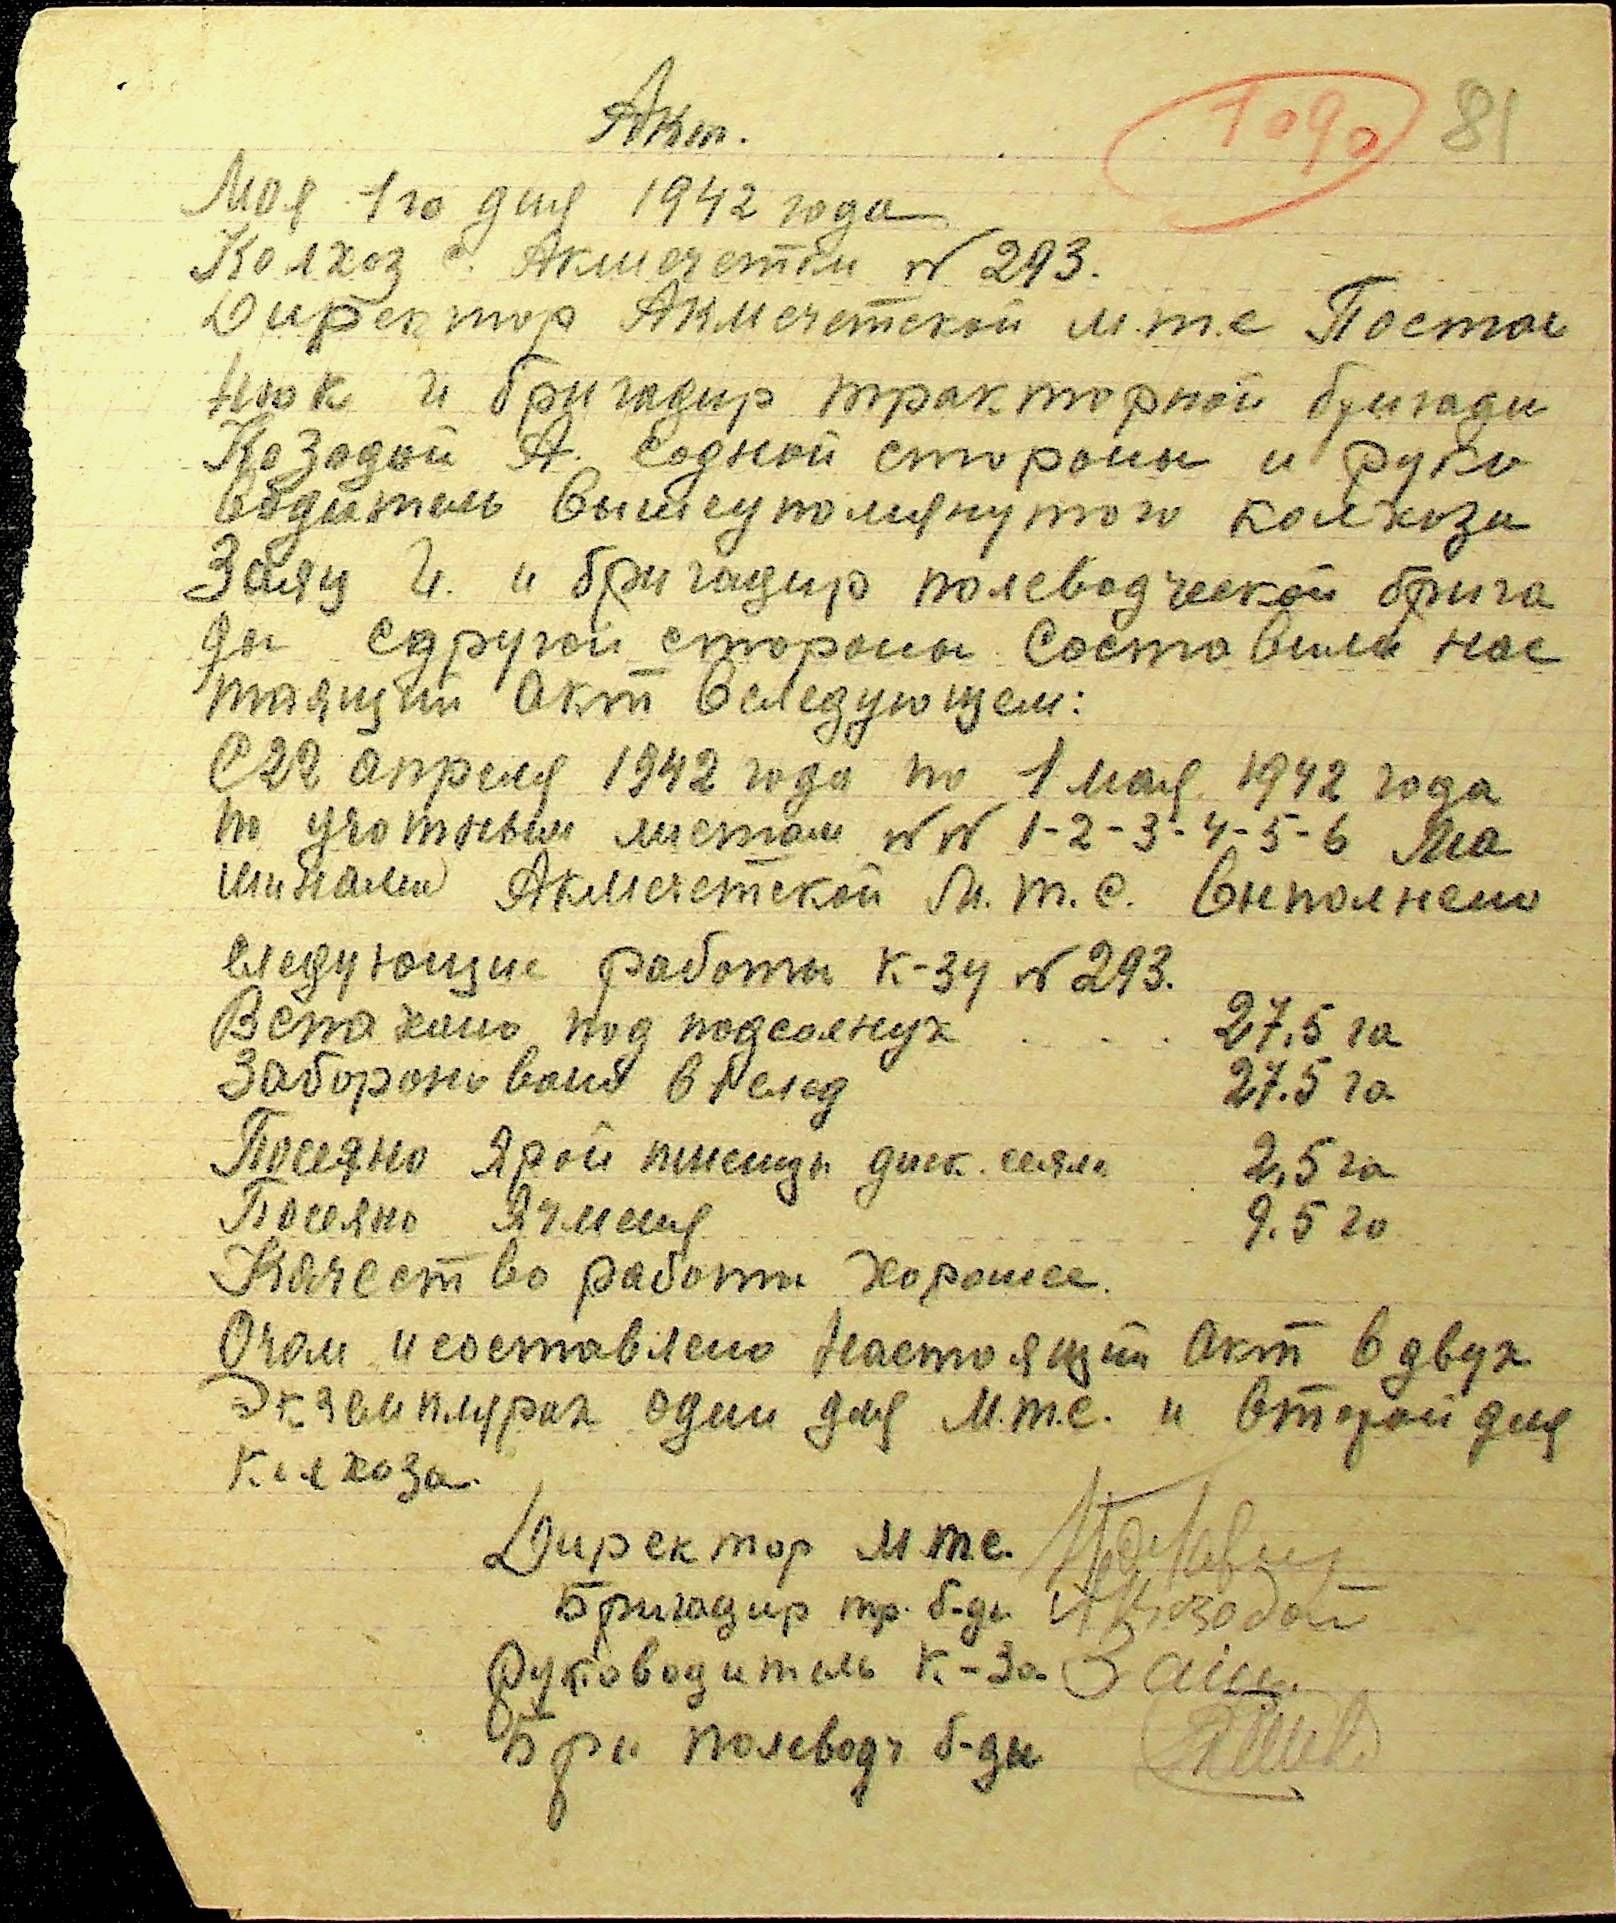 Акт.
1090 81
Мая 1го дня 1942 года
Колхоз с. Акмечетки № 293.
Директор Акмечетской м.т.с Постол
нюк и бригадир тракторной бригади
Козодой А. содной стороны и руко
водитель вышеупомянутого колхоза
Заяц И. и бригадир полеводческой брига
ды сдругой стороны Составили нас
тоящий акт вследующем:
С 22 апреля 1942 года по 1 мая 1942 года
по учотным листам №№ 1-2-3-4-5-6 Ма
шинами Акмечетской М.т.с. выполнено
следующие работы к-зу № 293.
Вспахано под подсолнух . . . 27,5 га
Забороновано вслед 27.5 га
Посеяно Ярой пшеницы диск. сеялк 2,5 га
Посеяно Ячменя 9.5 га
Качество работы хорошее.
Очом и составлено Настоящий акт вдвух
Экземплярах один для М.т.с. и второй для
Колхоза.
Директор М.т.с.
Бригадир тр. б-ды А Козодой
Руководитель к-за Заіц.
Бри полеводч б-ды